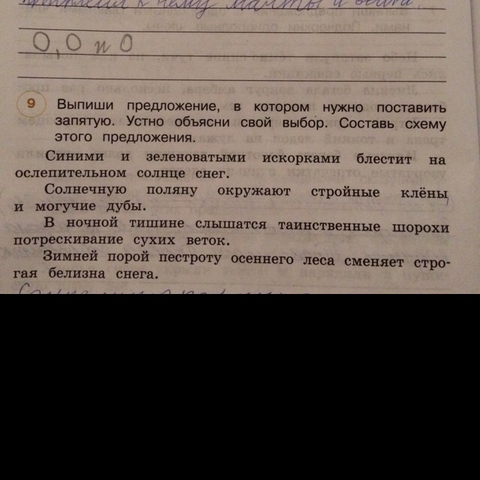 к нему мачты и
О, О и О
9 Выпиши предложение, в котором нужно поставить
запятую. Устно объясни свой выбор. Составь схему
этого предложения.
Синими и зеленоватыми искорками блестит на
ослепительном солнце снег.
Солнечную поляну окружают стройные клёны
и могучие дубы.
В ночной тишине слышатся таинственные шорохи
потрескивание сухих веток.
Зимней порой пестроту осеннего леса сменяет стро-
гая белизна снега.